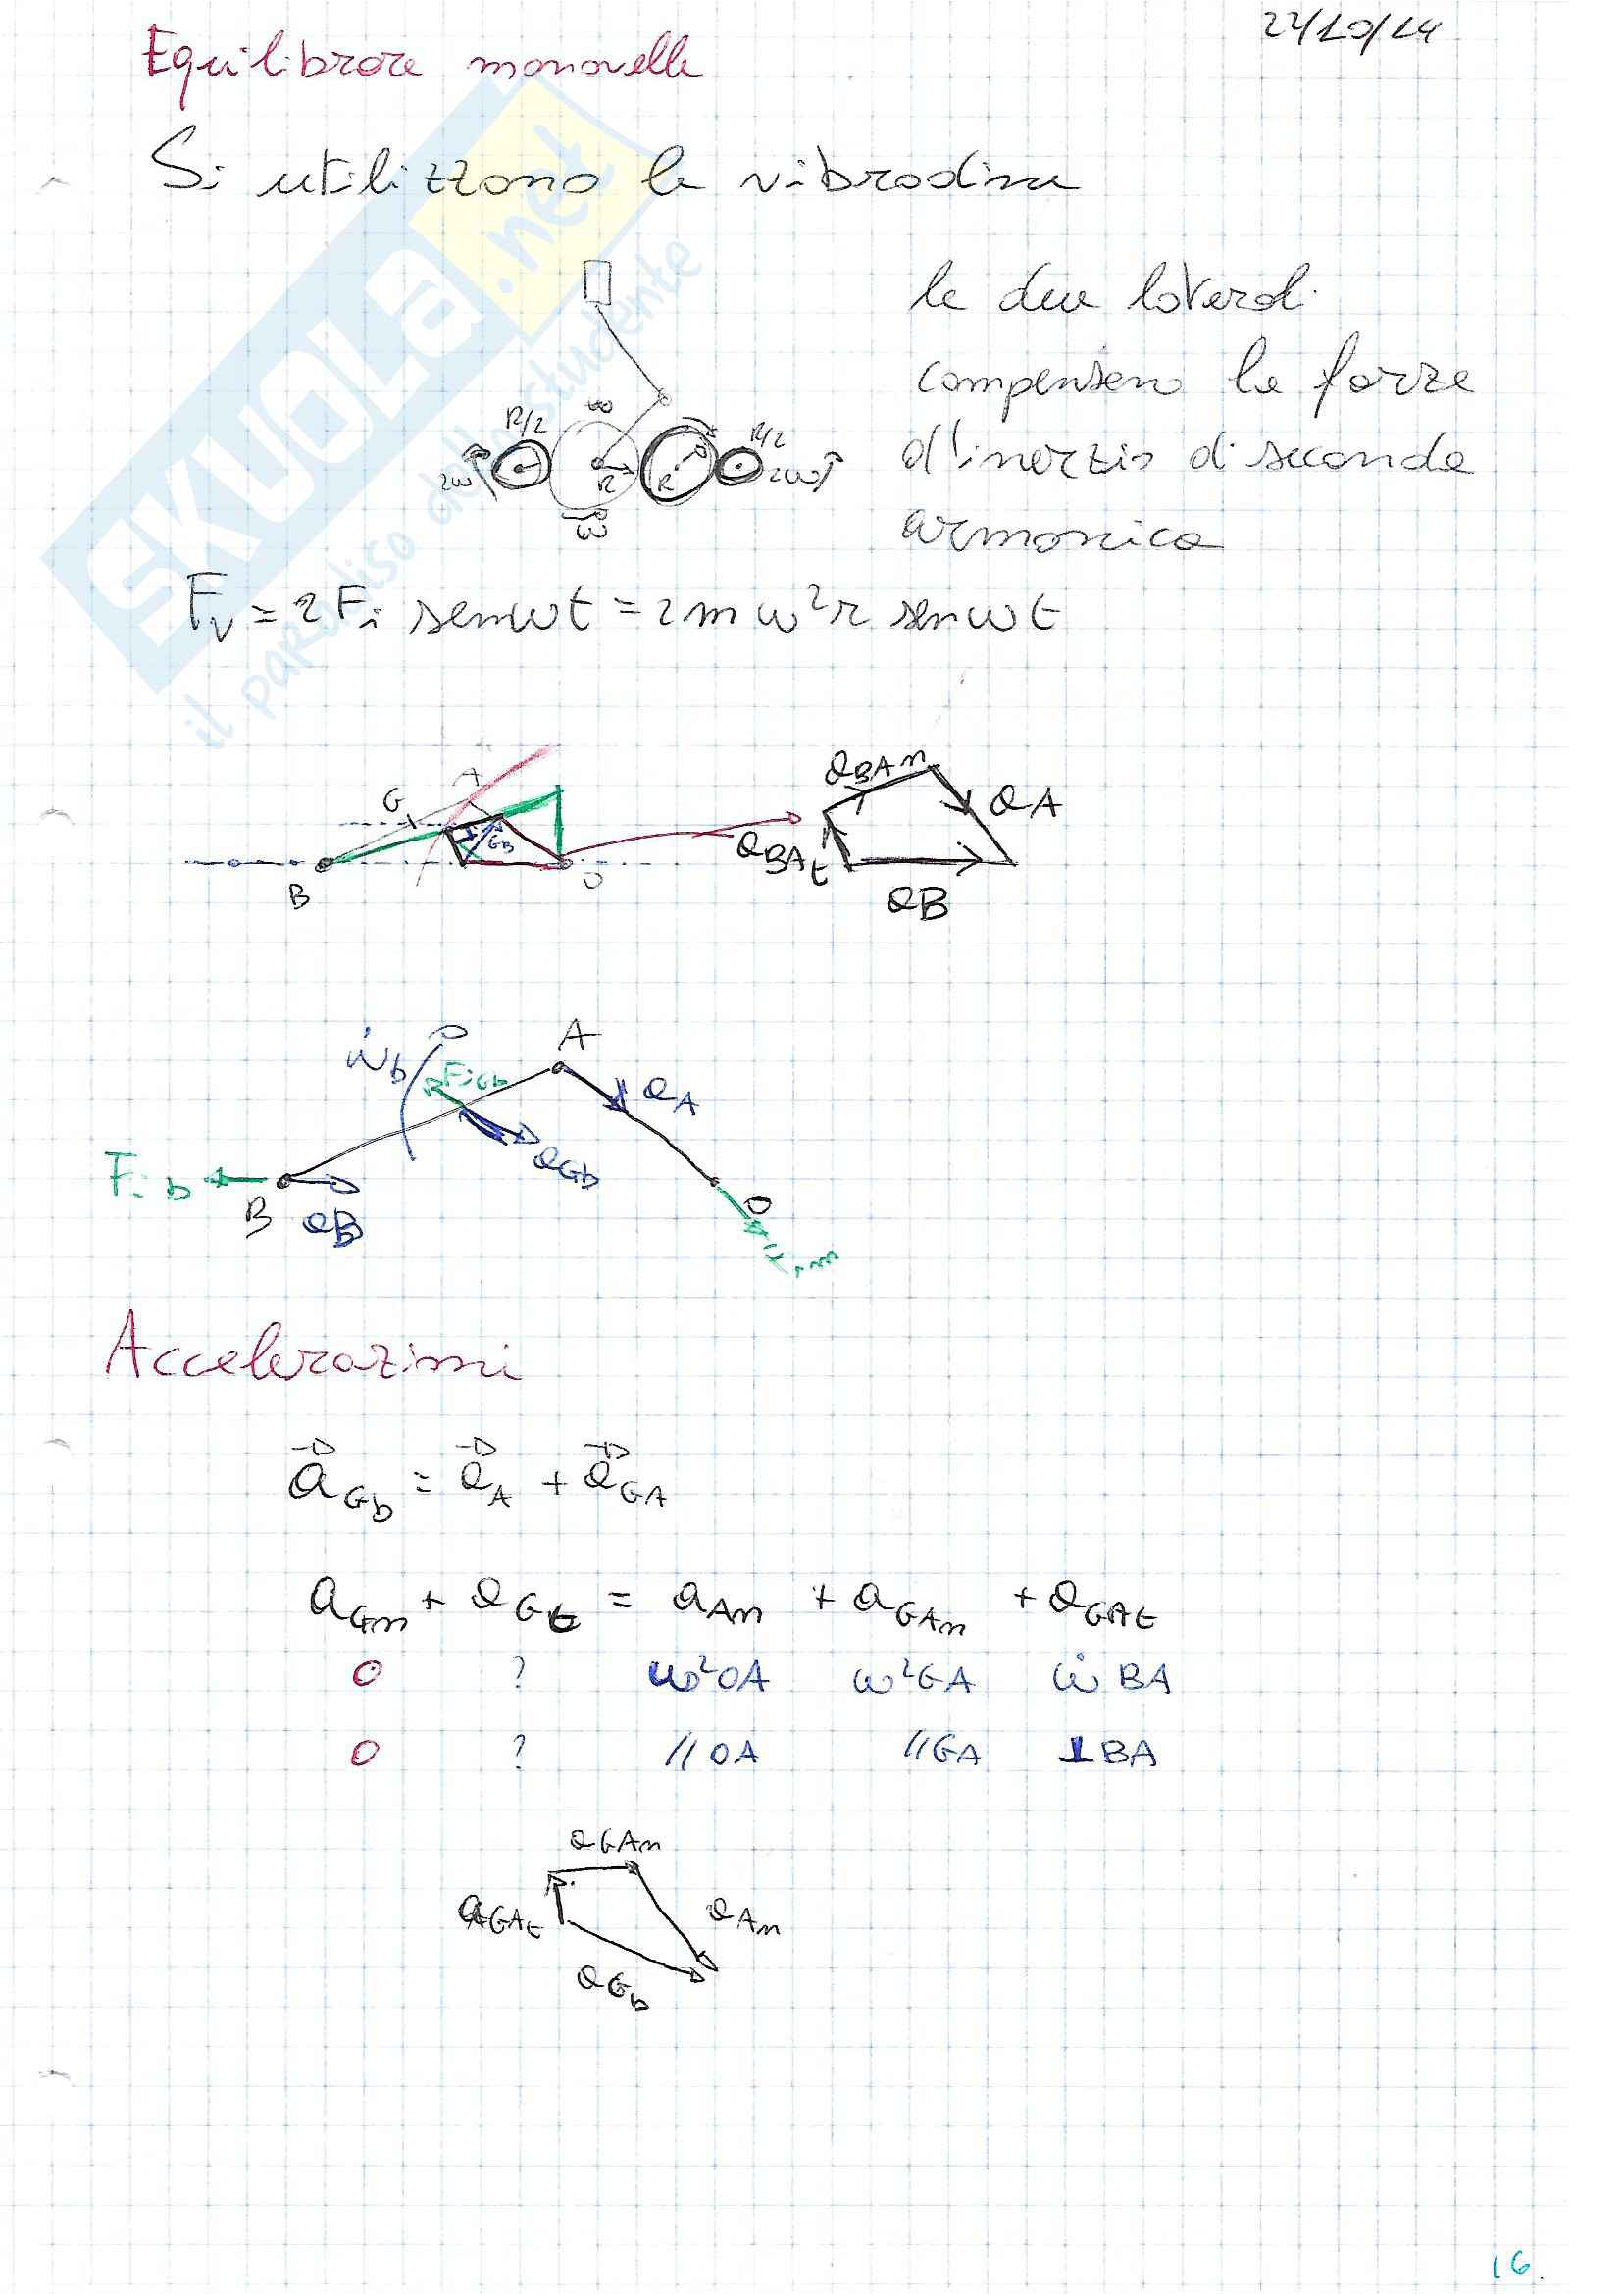 22/10/14
Equilibrare manovelle
Si utilizzano le vibrodine
le due laterali
compensano le forze
d'inerzia di seconda
armonica
R/2 ω R/2
2ω R R 2ω
ω
F_v = 2 F_i sen ωt = 2 m ω² r sen ωt
A
G
G_B
B O
a_BAn
a_A
a_BAt
a_B
A
ω̇_b
F_iGb
a_A
a_Gb
F_ib
B a_B
O
F_im
Accelerazioni
a⃗_Gb = a⃗_A + a⃗_GA
a_Gn + a_Gt = a_An + a_GAn + a_GAt
0 ? ω²OA ω²GA ω̇ BA
0 ? //OA //GA ⊥BA
a_GAn
a_GAt
a_An
a_Gb
16.
SKUOLA.net
il paradiso dello studente